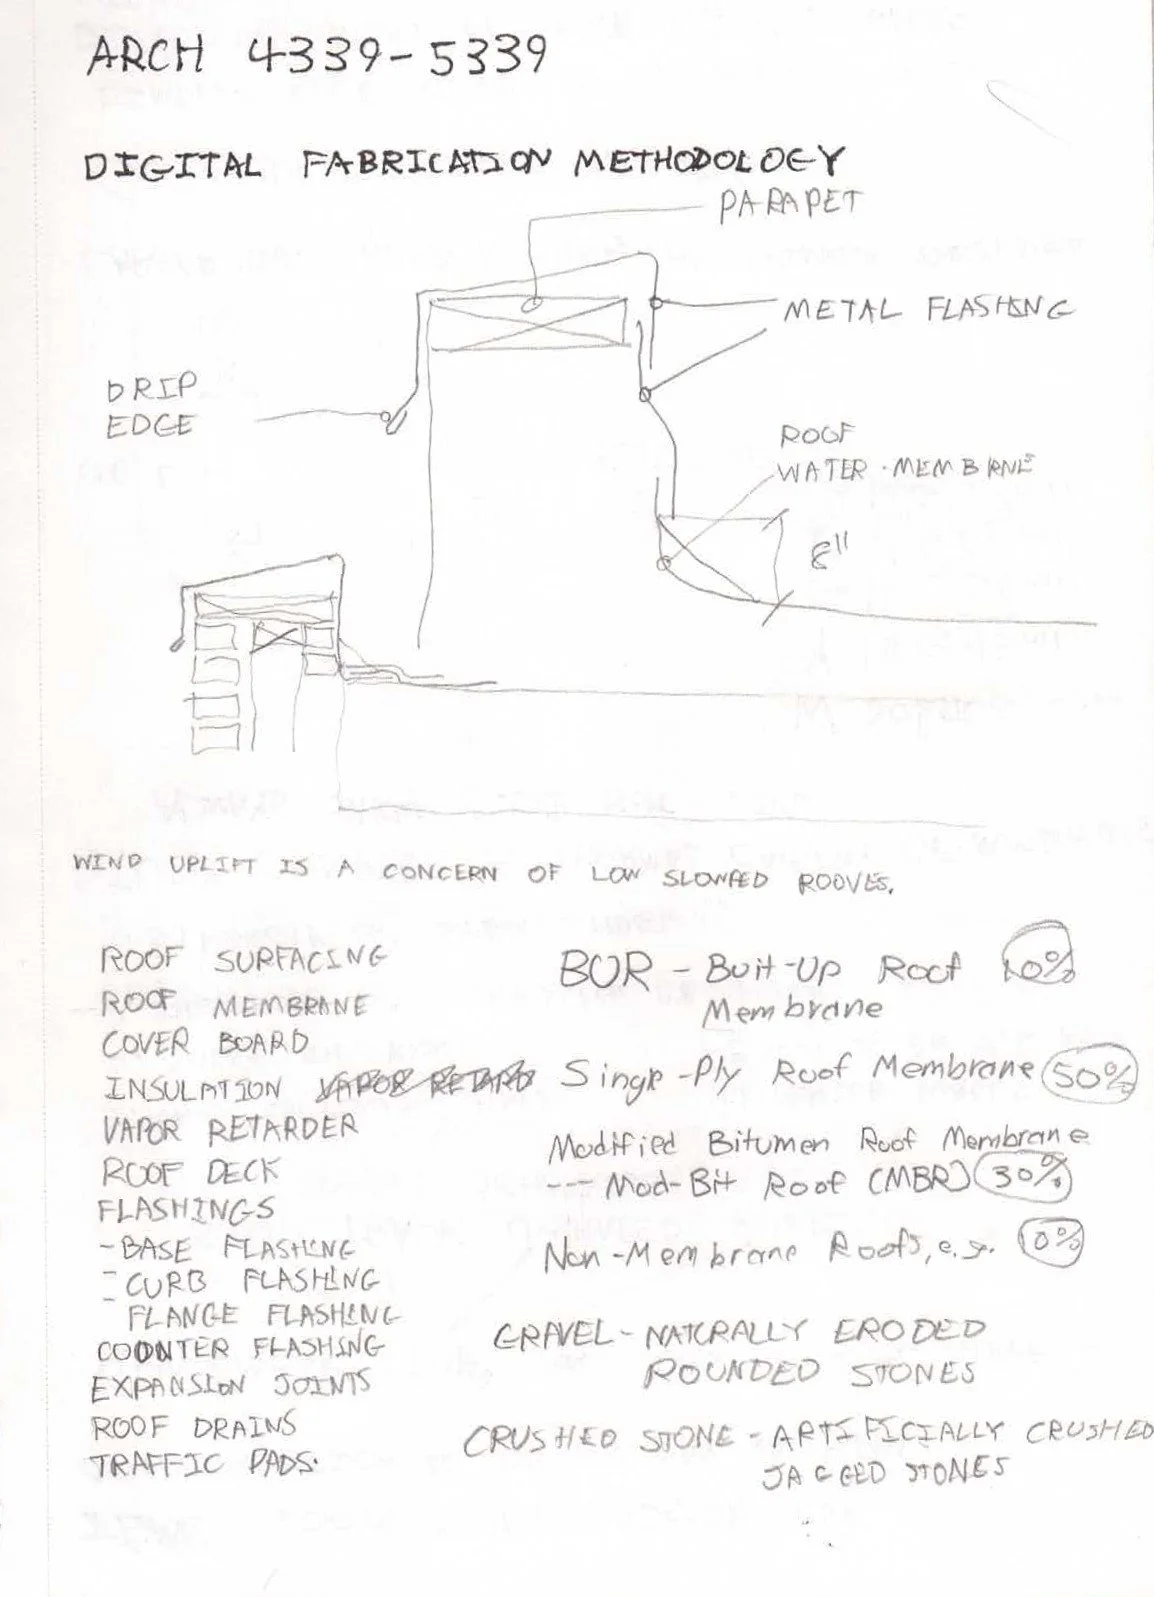 ARCH 4339-5339
DIGITAL FABRICATION METHODOLOGY
PARAPET
METAL FLASHING
DRIP
EDGE
ROOF
WATER · MEMBRNE
8"
WIND UPLIFT IS A CONCERN OF LOW SLOWPED ROOVES.
ROOF SURFACING
ROOF MEMBRANE
COVER BOARD
INSULATION VAPOR RETARD
VAPOR RETARDER
ROOF DECK
FLASHINGS
- BASE FLASHING
- CURB FLASHING
- FLANGE FLASHING
COUNTER FLASHING
EXPANSION JOINTS
ROOF DRAINS
TRAFFIC PADS.
BUR - Buit-Up Roof 10%
Membrane
Single-Ply Roof Membrane 50%
Modified Bitumen Roof Membrane
--- Mod-Bit Roof (MBR) 30%
Non-Membrane Roofs, e.g. 10%
GRAVEL - NATURALLY ERODED
ROUNDED STONES
CRUSHED STONE - ARTIFICIALLY CRUSHED
JAGGED STONES